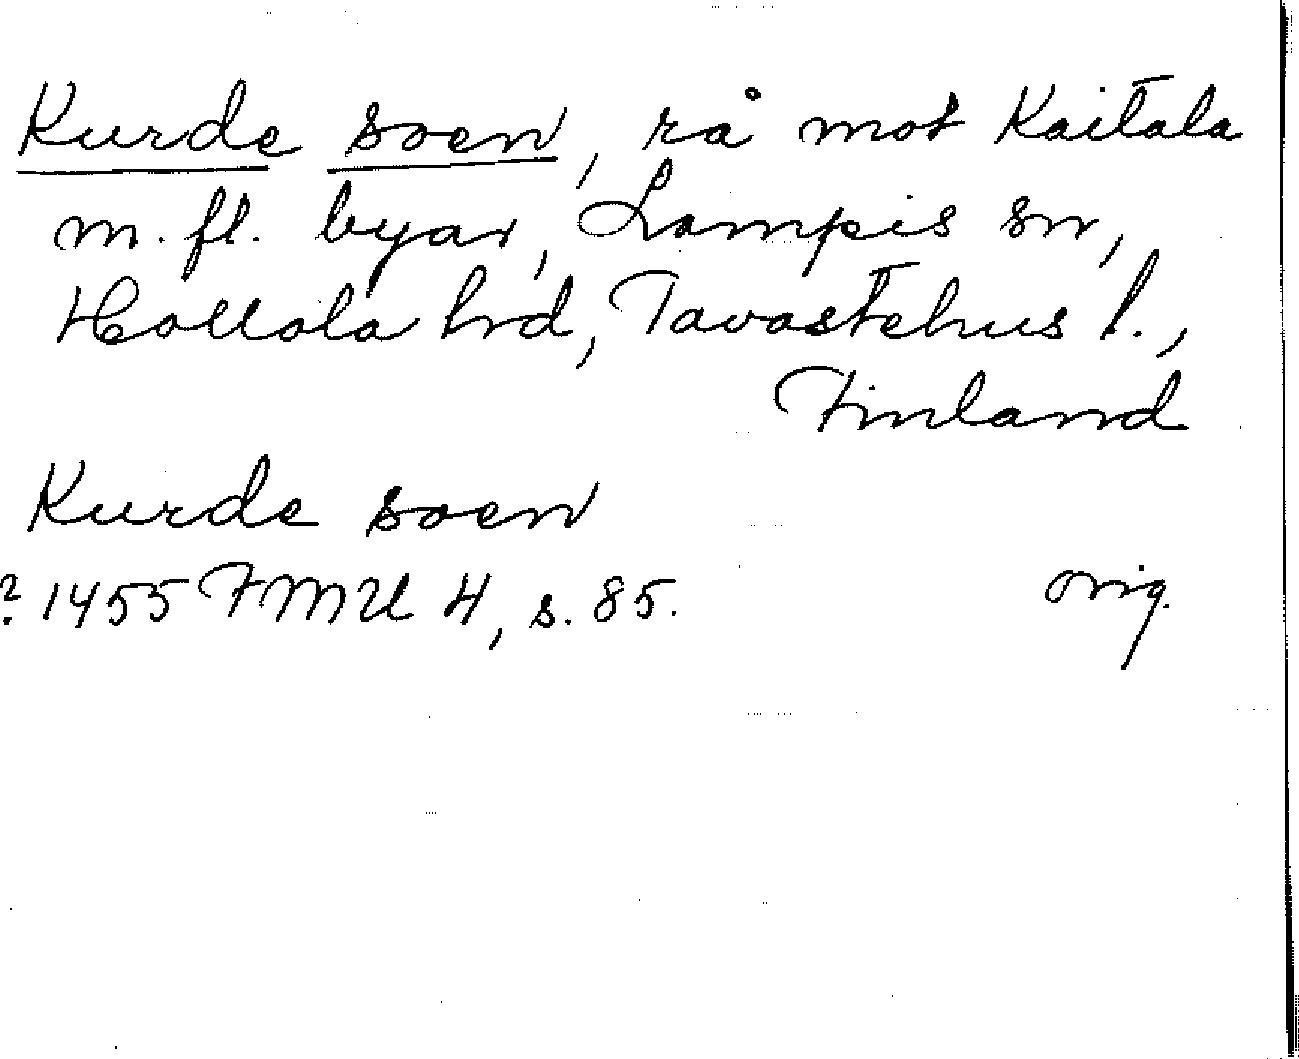 Kurde soen, rå mot Kaitala
m. fl. byar, Lampis sn,
Hollola hrd, Tavastehus l.,
Finland
Kurde soen
? 1455 FMU 4, s. 85. orig.